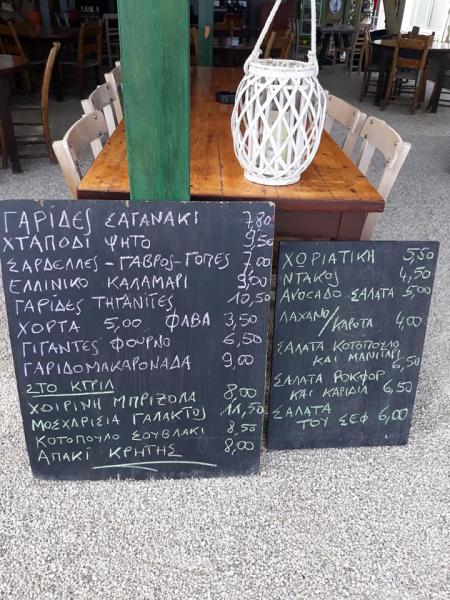 ΓΑΡΙΔΕΣ ΣΑΓΑΝΑΚΙ 7,80
ΧΤΑΠΟΔΙ ΨΗΤΟ 9,50
ΣΑΡΔΕΛΛΕΣ - ΓΑΒΡΟΣ - ΓΟΠΕΣ 7,00
ΕΛΛΙΝΙΚΟ ΚΑΛΑΜΑΡΙ 9,00
ΓΑΡΙΔΕΣ ΤΗΓΑΝΙΤΕΣ 10,50
ΧΟΡΤΑ 5,00 ΦΑΒΑ 3,50
ΓΙΓΑΝΤΕΣ ΦΟΥΡΝΟ 6,50
ΓΑΡΙΔΟΜΑΚΑΡΟΝΑΔΑ 9,00
ΣΤΟ ΓΚΡΙΛ
ΧΟΙΡΙΝΗ ΜΠΡΙΖΟΛΑ 8,00
ΜΟΣΧΑΡΙΣΙΑ ΓΑΛΑΚΤΟΣ 11,50
ΚΟΤΟΠΟΥΛΟ ΣΟΥΒΛΑΚΙ 8,50
ΑΠΑΚΙ ΚΡΗΤΗΣ 8,00
ΧΩΡΙΑΤΙΚΗ 5,50
ΝΤΑΚΟΣ 4,50
AVOCADO ΣΑΛΑΤΑ 5,00
ΛΑΧΑΝΟ/ΚΑΡΟΤΑ 4,00
ΣΑΛΑΤΑ ΚΟΤΟΠΟΥΛΟ
ΚΑΙ ΜΑΝΙΤΑΡΙ 6,50
ΣΑΛΑΤΑ ΡΟΚΦΟΡ
ΚΑΙ ΚΑΡΙΔΙΑ 6,50
ΣΑΛΑΤΑ
ΤΟΥ ΣΕΦ 6,00